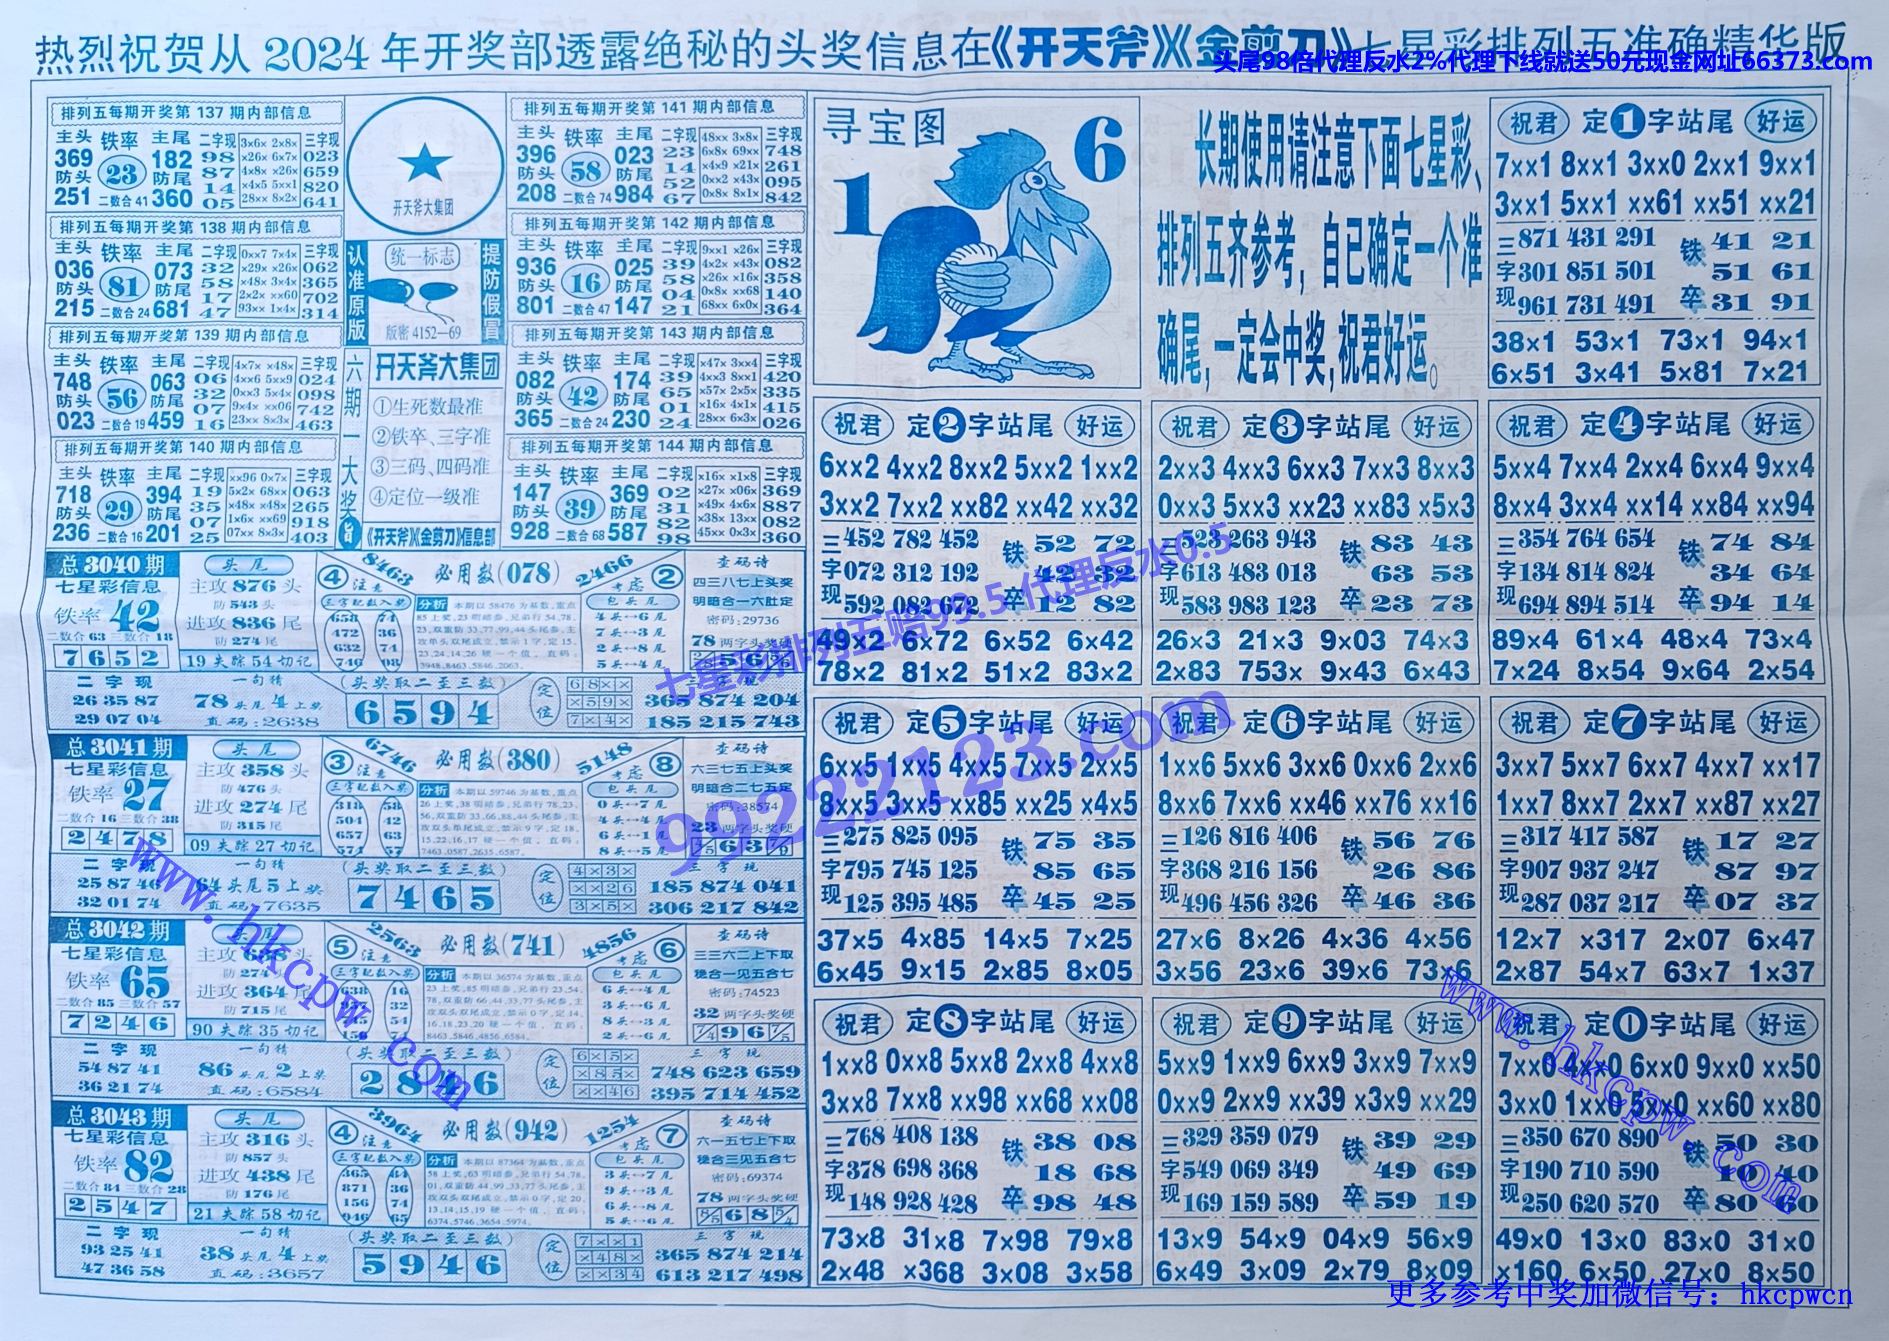 热烈祝贺从2024年开奖部透露绝秘的头奖信息在《开天斧》《金剪刀》七星彩排列五准确精华版
头尾98倍代理反水2%代理下线就送50元现金网址66373.com
排列五每期开奖第137期内部信息
主头 铁率 主尾 二字现 三字现
369 23 182
防头 防尾
251 二数合41 360
98 87 14 05
3x6x 2x8x
x26x 6x7x
4x8x x26x
x4x5 5xx1
28xx 8x2x
023 659 820 641
排列五每期开奖第138期内部信息
主头 铁率 主尾 二字现 三字现
036 81 073
防头 防尾
215 二数合24 681
32 58 17 47
0xx7 7x4x
x29x x26x
x48x 3x4x
2x2x xx60
93xx 1x4x
062 365 702 314
排列五每期开奖第139期内部信息
主头 铁率 主尾 二字现 三字现
748 56 063
防头 防尾
023 二数合19 459
06 32 07 16
4x7x x48x
4xx6 5xx9
0xx3 5x4x
9x4x xx06
23xx 8x3x
024 098 742 463
排列五每期开奖第140期内部信息
主头 铁率 主尾 二字现 三字现
718 29 394
防头 防尾
236 二数合16 201
19 35 07 25
xx96 0x7x
5x2x 68xx
x48x x48x
1x6x xx69
07xx 8x3x
063 265 918 403
开天斧大集团
认准原版
统一标志
提防假冒
版密 4152—69
六期一大奖
开天斧大集团
①生死数最准
②铁卒、三字准
③三码、四码准
④定位一级准
《开天斧》《金剪刀》信息部
排列五每期开奖第141期内部信息
主头 铁率 主尾 二字现 三字现
396 58 023
防头 防尾
208 二数合74 984
23 14 52 67
48xx 3x8x
6x8x 69xx
x4x9 x21x
0xx2 x43x
0x8x 8x1x
748 261 095 842
排列五每期开奖第142期内部信息
主头 铁率 主尾 二字现 三字现
936 16 025
防头 防尾
801 二数合47 147
39 58 04 21
9xx1 x26x
4x2x x43x
x26x x16x
0x8x xx68
68xx 6x0x
082 358 140 364
排列五每期开奖第143期内部信息
主头 铁率 主尾 二字现 三字现
082 42 174
防头 防尾
365 二数合24 230
39 65 01 24
x47x 3xx4
4xx3 8xx1
x57x 2x5x
x16x 4x1x
28xx 6x3x
420 335 415 026
排列五每期开奖第144期内部信息
主头 铁率 主尾 二字现 三字现
147 39 369
防头 防尾
928 二数合68 587
02 31 82 98
x16x x1x8
x27x x06x
x49x 4x6x
x38x 13xx
45xx 0x3x
369 887 082 360
总3040期
七星彩信息
铁率 42
二数合63 三数合18
7 6 5 2
头尾
主攻 876 头
防 543 头
进攻 836 尾
防 274 尾
19 失踪 54 切记
④ 注意 8463 必用数(078) 2466 考虑 ②
三字配数入奖
658 74
472 36
632 74
746 98
分析 本期以58476为基数,重点
85上奖,23明结参,兄弟行54,78,
23,双重防33,77,99,44头尾参,主
攻单头双尾成立,禁示0字,定15,
23,24,14,26硬一个值,直码:
3948,8463,5846,2063。
包头尾
4头↔6尾
7头↔3尾
2头↔8尾
5头↔4尾
查码诗
四三八七上头奖
明暗合一六肚定
密码:29736
78 两字头奖硬
二字现
26 35 87
29 07 04
一句精
78 头尾 4 上奖
直码:2638
(头奖取二至三数)
6 5 9 4
定位
68××
×59×
7×4×
三字现
365 874 204
185 215 743
总3041期
七星彩信息
铁率 27
二数合16 三数合38
2 4 7 8
头尾
主攻 358 头
防 476 头
进攻 274 尾
防 315 尾
09 失踪 27 切记
③ 注意 6746 必用数(380) 5148 考虑 ⑧
三字配数入奖
318 58
504 42
657 63
574 57
分析 本期以59746为基数,重点
26上奖,38明结参,兄弟行78,23,
56,双重防33,66,88,44头尾参,主
攻双头单尾成立,禁示9字,定18,
15,22,16,17硬一个值,直码:
7463,0587,2635,6587。
包头尾
0头↔7尾
4头↔4尾
6头↔1尾
8头↔5尾
查码诗
六三七五上头奖
明暗合二七五定
密码:38574
23 两字头奖硬
二字现
25 87 46
32 01 74
一句精
64 头尾 5 上奖
直码:7635
(头奖取二至三数)
7 4 6 5
定位
4×3×
××26
3×5×
三字现
185 874 041
306 217 842
总3042期
七星彩信息
铁率 65
二数合85 三数合57
7 2 4 6
头尾
防 274 头
进攻 364 尾
防 715 尾
90 失踪 35 切记
⑤ 注意 2563 必用数(741) 4856 考虑 ⑥
三字配数入奖
分析 本期以36574为基数,重点
23上奖,85明结参,兄弟行23,54,
78,双重防66,44,33,77头尾参,主
攻双头双尾成立,禁示0字,定14,
16,18,23,20硬一个值,直码:
8463,5846,4856,6584。
包头尾
6头↔4尾
3头↔6尾
8头↔3尾
4头↔2尾
查码诗
三三六二上下取
稳合一见五合七
密码:74523
32 两字头奖硬
二字现
54 87 41
36 21 74
一句精
86 头尾 2 上奖
直码:6584
(头奖取二至三数)
2 8 4 6
定位
6×5×
×85×
××46
三字现
748 623 659
395 714 452
总3043期
七星彩信息
铁率 82
二数合84 三数合28
2 5 4 7
头尾
主攻 316 头
防 857 头
进攻 438 尾
防 176 尾
21 失踪 58 切记
④ 注意 3964 必用数(942) 1254 考虑 ⑦
三字配数入奖
365 84
871 36
156 74
946 65
分析 本期以87364为基数,重点
58上奖,63明结参,兄弟行54,78,
01,双重防44,99,33,77头尾参,主
攻双头双尾成立,禁示0字,定20,
13,14,15,19硬一个值,直码:
6374,5746,3654,5974。
包头尾
3头↔7尾
9头↔3尾
6头↔8尾
5头↔6尾
查码诗
六一五七上下取
稳合三见五合七
密码:69374
78 两字头奖硬
二字现
93 25 41
47 36 58
一句精
38 头尾 4 上奖
直码:3657
(头奖取二至三数)
5 9 4 6
定位
7××1
×48×
××34
三字现
365 874 214
613 217 498
寻宝图
1 6
长期使用请注意下面七星彩、
排列五齐参考,自已确定一个准
确尾,一定会中奖,祝君好运。
祝君 定1字站尾 好运
7××1 8××1 3××0 2××1 9××1
3××1 5××1 ××61 ××51 ××21
三字现 铁卒
871 431 291 41 21
301 851 501 51 61
961 731 491 31 91
38×1 53×1 73×1 94×1
6×51 3×41 5×81 7×21
祝君 定2字站尾 好运
6××2 4××2 8××2 5××2 1××2
3××2 7××2 ××82 ××42 ××32
三字现 铁卒
452 782 452 52 72
072 312 192 42 32
592 082 672 12 82
49×2 6×72 6×52 6×42
78×2 81×2 51×2 83×2
祝君 定3字站尾 好运
2××3 4××3 6××3 7××3 8××3
0××3 5××3 ××23 ××83 ×5×3
三字现 铁卒
523 263 943 83 43
613 483 013 63 53
583 983 123 23 73
26×3 21×3 9×03 74×3
2×83 753× 9×43 6×43
祝君 定4字站尾 好运
5××4 7××4 2××4 6××4 9××4
8××4 3××4 ××14 ××84 ××94
三字现 铁卒
354 764 654 74 84
134 814 824 34 64
694 894 514 94 14
89×4 61×4 48×4 73×4
7×24 8×54 9×64 2×54
祝君 定5字站尾 好运
6××5 1××5 4××5 7××5 2××5
8××5 3××5 ××85 ××25 ×4×5
三字现 铁卒
275 825 095 75 35
795 745 125 85 65
125 395 485 45 25
37×5 4×85 14×5 7×25
6×45 9×15 2×85 8×05
祝君 定6字站尾 好运
1××6 5××6 3××6 0××6 2××6
8××6 7××6 ××46 ××76 ××16
三字现 铁卒
126 816 406 56 76
368 216 156 26 86
496 456 326 46 36
27×6 8×26 4×36 4×56
3×56 23×6 39×6 73×6
祝君 定7字站尾 好运
3××7 5××7 6××7 4××7 ××17
1××7 8××7 2××7 ××87 ××27
三字现 铁卒
317 417 587 17 27
907 937 247 87 97
287 037 217 07 37
12×7 ×317 2×07 6×47
2×87 54×7 63×7 1×37
祝君 定8字站尾 好运
1××8 0××8 5××8 2××8 4××8
3××8 7××8 ××98 ××68 ××08
三字现 铁卒
768 408 138 38 08
378 698 368 18 68
148 928 428 98 48
73×8 31×8 7×98 79×8
2×48 ×368 3×08 3×58
祝君 定9字站尾 好运
5××9 1××9 6××9 3××9 7××9
0××9 2××9 ××39 ×3×9 ××29
三字现 铁卒
329 359 079 39 29
549 069 349 49 69
169 159 589 59 19
13×9 54×9 04×9 56×9
6×49 3×09 2×79 8×09
祝君 定0字站尾 好运
7××0 4××0 6××0 9××0 ××50
3××0 1××0 5××0 ××60 ××80
三字现 铁卒
350 670 890 50 30
190 710 590 10 40
250 620 570 80 60
49×0 13×0 83×0 31×0
×160 6×50 27×0 8×50
七星彩排列五赔99.5代理反水0.5
99222123.com
www.hkcpw.com
www.hkcpw.com
更多参考中奖加微信号: hkcpwcn